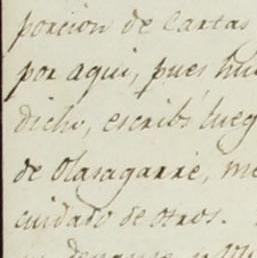 porcion de Cartas
por aqui, pues hu
dicho, escribí lueg
de Olasagarre, me
cuidado de otros.